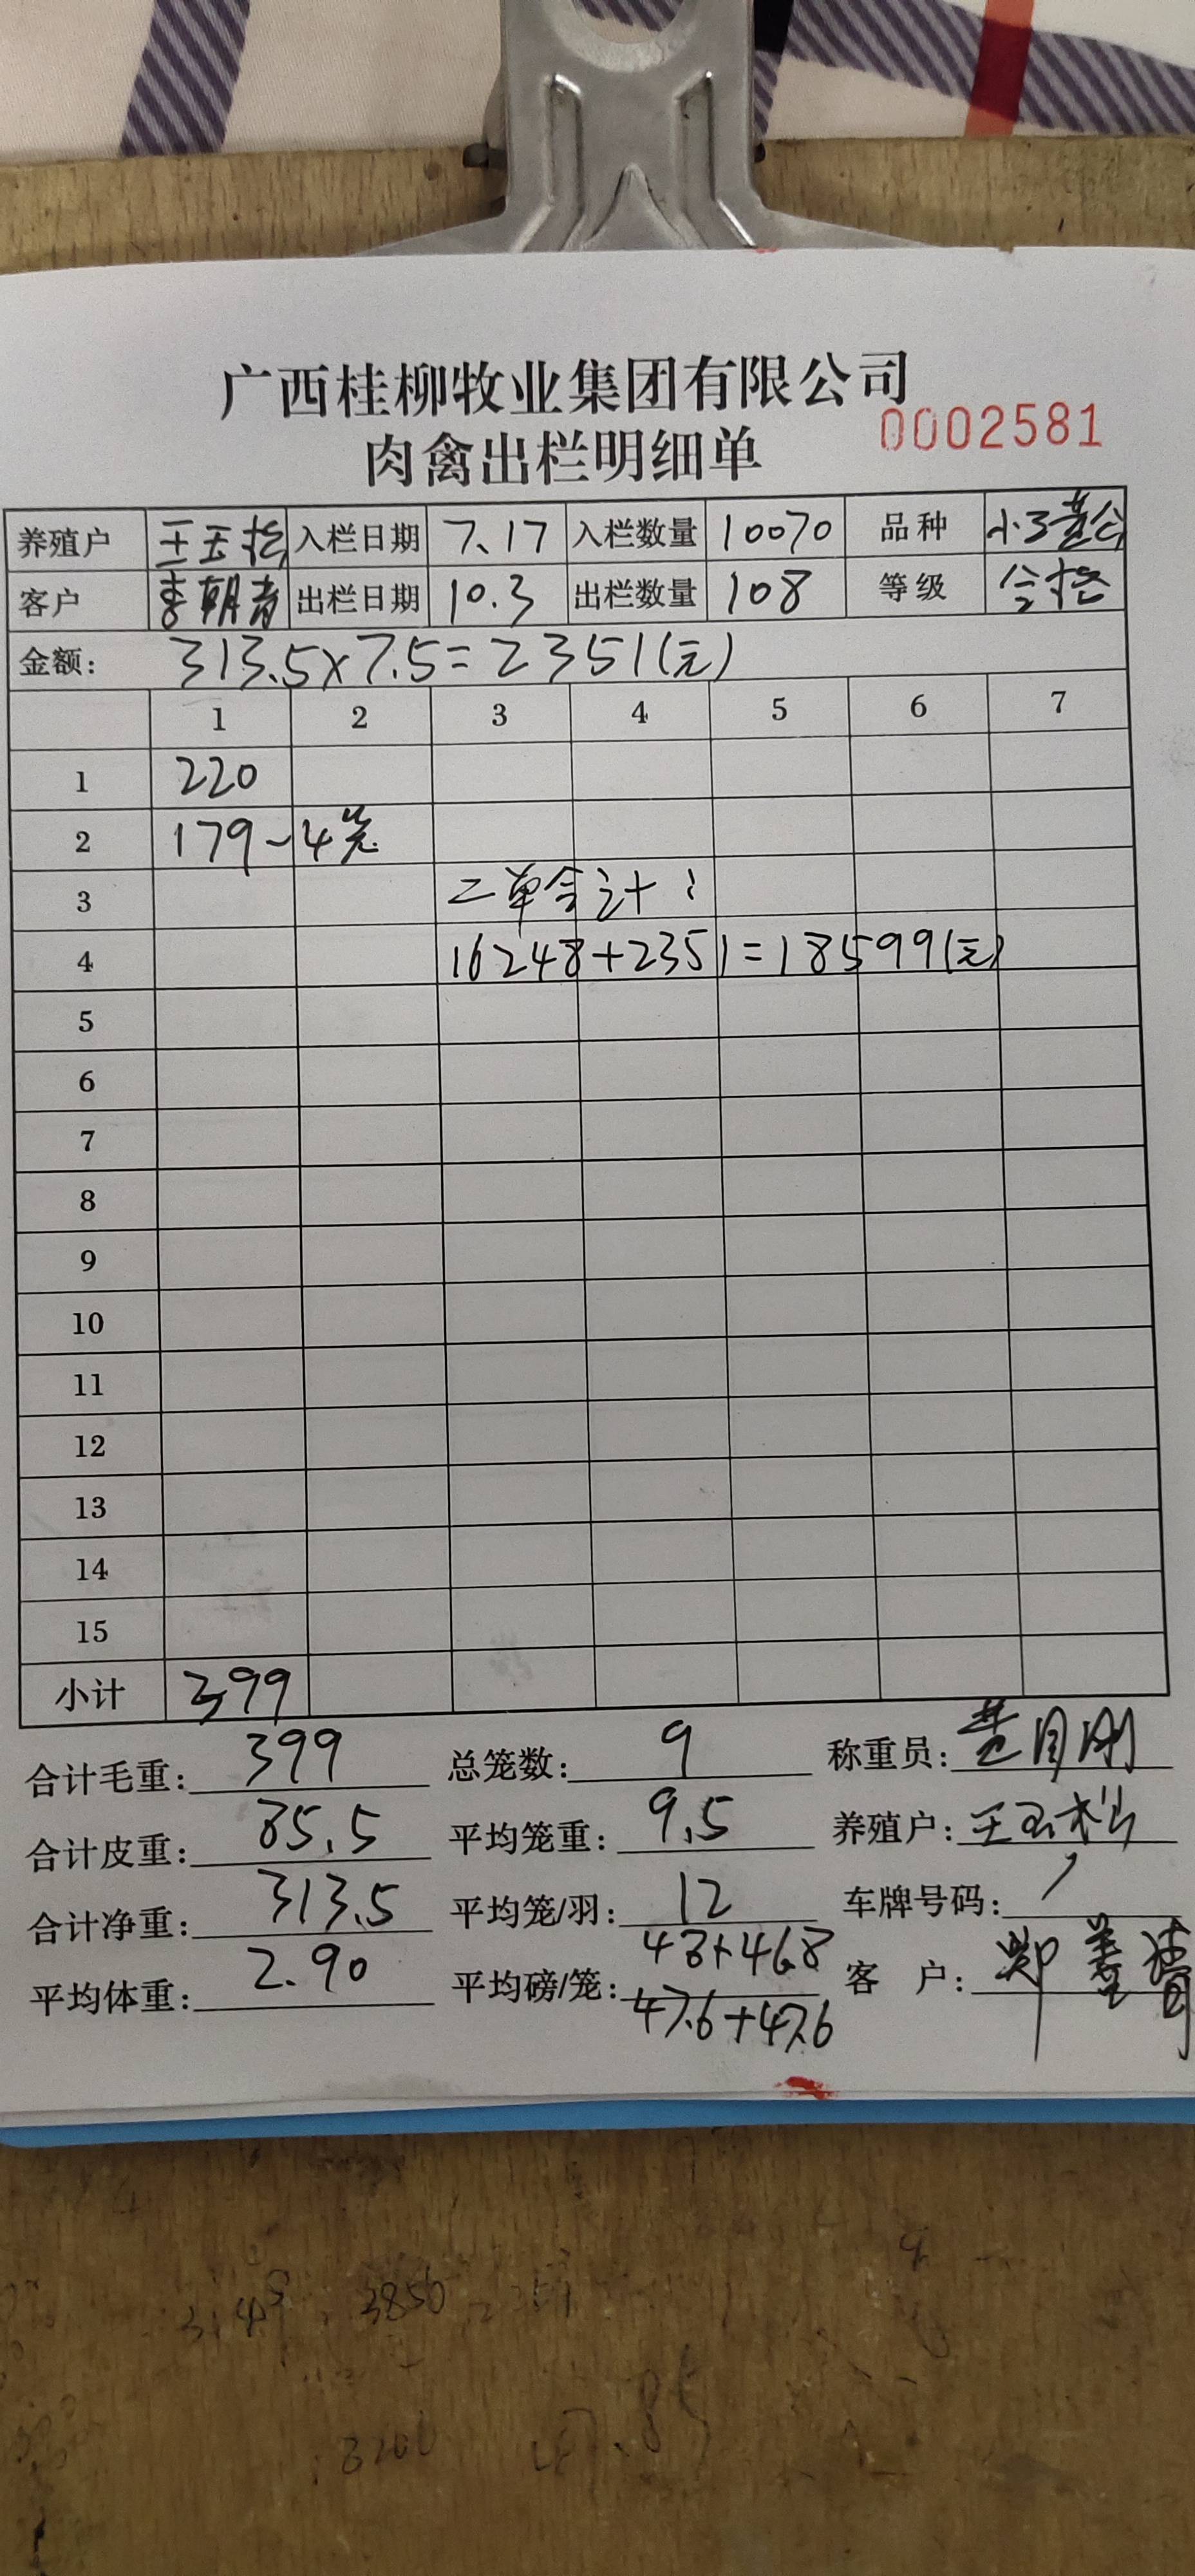 广西桂柳牧业集团有限公司
肉禽出栏明细单 0002581
养殖户 王玉松 入栏日期 7.17 入栏数量 10070 品种 小三黄公
客户 李朝青 出栏日期 10.3 出栏数量 108 等级 合格
金额: 313.5×7.5=2351(元)
1 2 3 4 5 6 7
1 220
2 179-4笼
3 二单合计:
4 16248+2351=18599(元)
5
6
7
8
9
10
11
12
13
14
15
小计 399
合计毛重: 399 总笼数: 9 称重员:
合计皮重: 85.5 平均笼重: 9.5 养殖户: 王玉松
合计净重: 313.5 平均笼/羽: 12 车牌号码: /
平均体重: 2.90 平均磅/笼: 48+46.8 客户: 郑
47.6+47.6